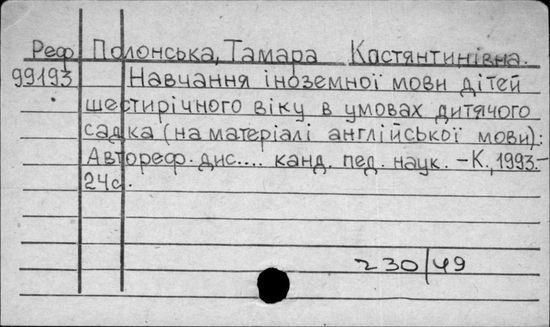 Реф Полонська, Тамара Костянтинівна.
99193 Навчання іноземної мови дітей
шестирічного віку в умовах дитячого
садка (на матеріалі англійської мови):
Автореф. дис.... канд. пед. наук. – К., 1993.–
24с.
230/49